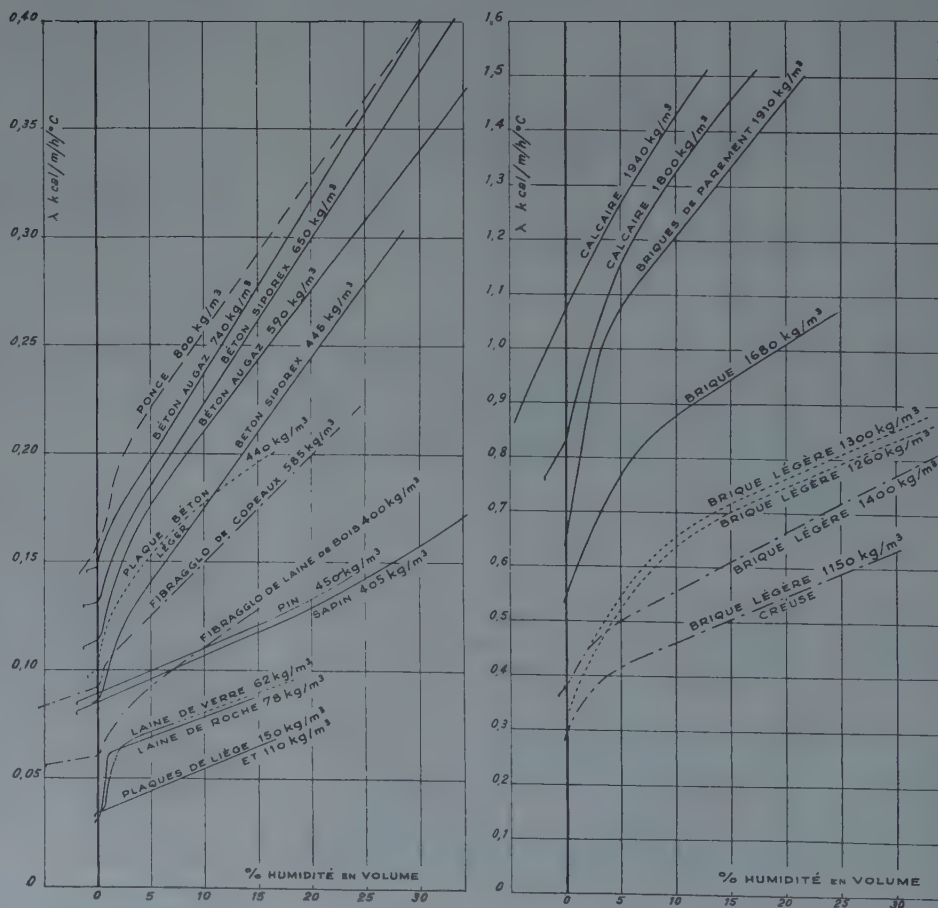 0,40
0,35
0,30
0,25
0,20
0,15
0,10
0,05
0
λ kcal/m/h/°C
PONCE 800 kg/m³
BÉTON AU GAZ 740 kg/m³
BÉTON SIPOREX 650 kg/m³
BÉTON AU GAZ 590 kg/m³
BETON SIPOREX 445 kg/m³
PLAQUE BÉTON 440 kg/m³
LÉGER
FIBRAGGLO DE COPEAUX 585 kg/m³
FIBRAGGLO DE LAINE DE BOIS 400 kg/m³
PIN 450 kg/m³
SAPIN 405 kg/m³
LAINE DE VERRE 62 kg/m³
LAINE DE ROCHE 78 kg/m³
PLAQUES DE LIÈGE 150 kg/m³
ET 110 kg/m³
% HUMIDITÉ EN VOLUME
0 5 10 15 20 25 30
1,6
1,5
1,4
1,3
1,2
1,1
1,0
0,9
0,8
0,7
0,6
0,5
0,4
0,3
0,2
0,1
0
λ kcal/m/h/°C
CALCAIRE 1940 kg/m³
CALCAIRE 1800 kg/m³
BRIQUES DE PAREMENT 1910 kg/m³
BRIQUE 1680 kg/m³
BRIQUE LÉGÈRE 1300 kg/m³
BRIQUE LÉGÈRE 1260 kg/m³
BRIQUE LÉGÈRE 1400 kg/m³
BRIQUE LÉGÈRE 1150 kg/m³
CREUSE
% HUMIDITÉ EN VOLUME
0 5 10 15 20 25 30